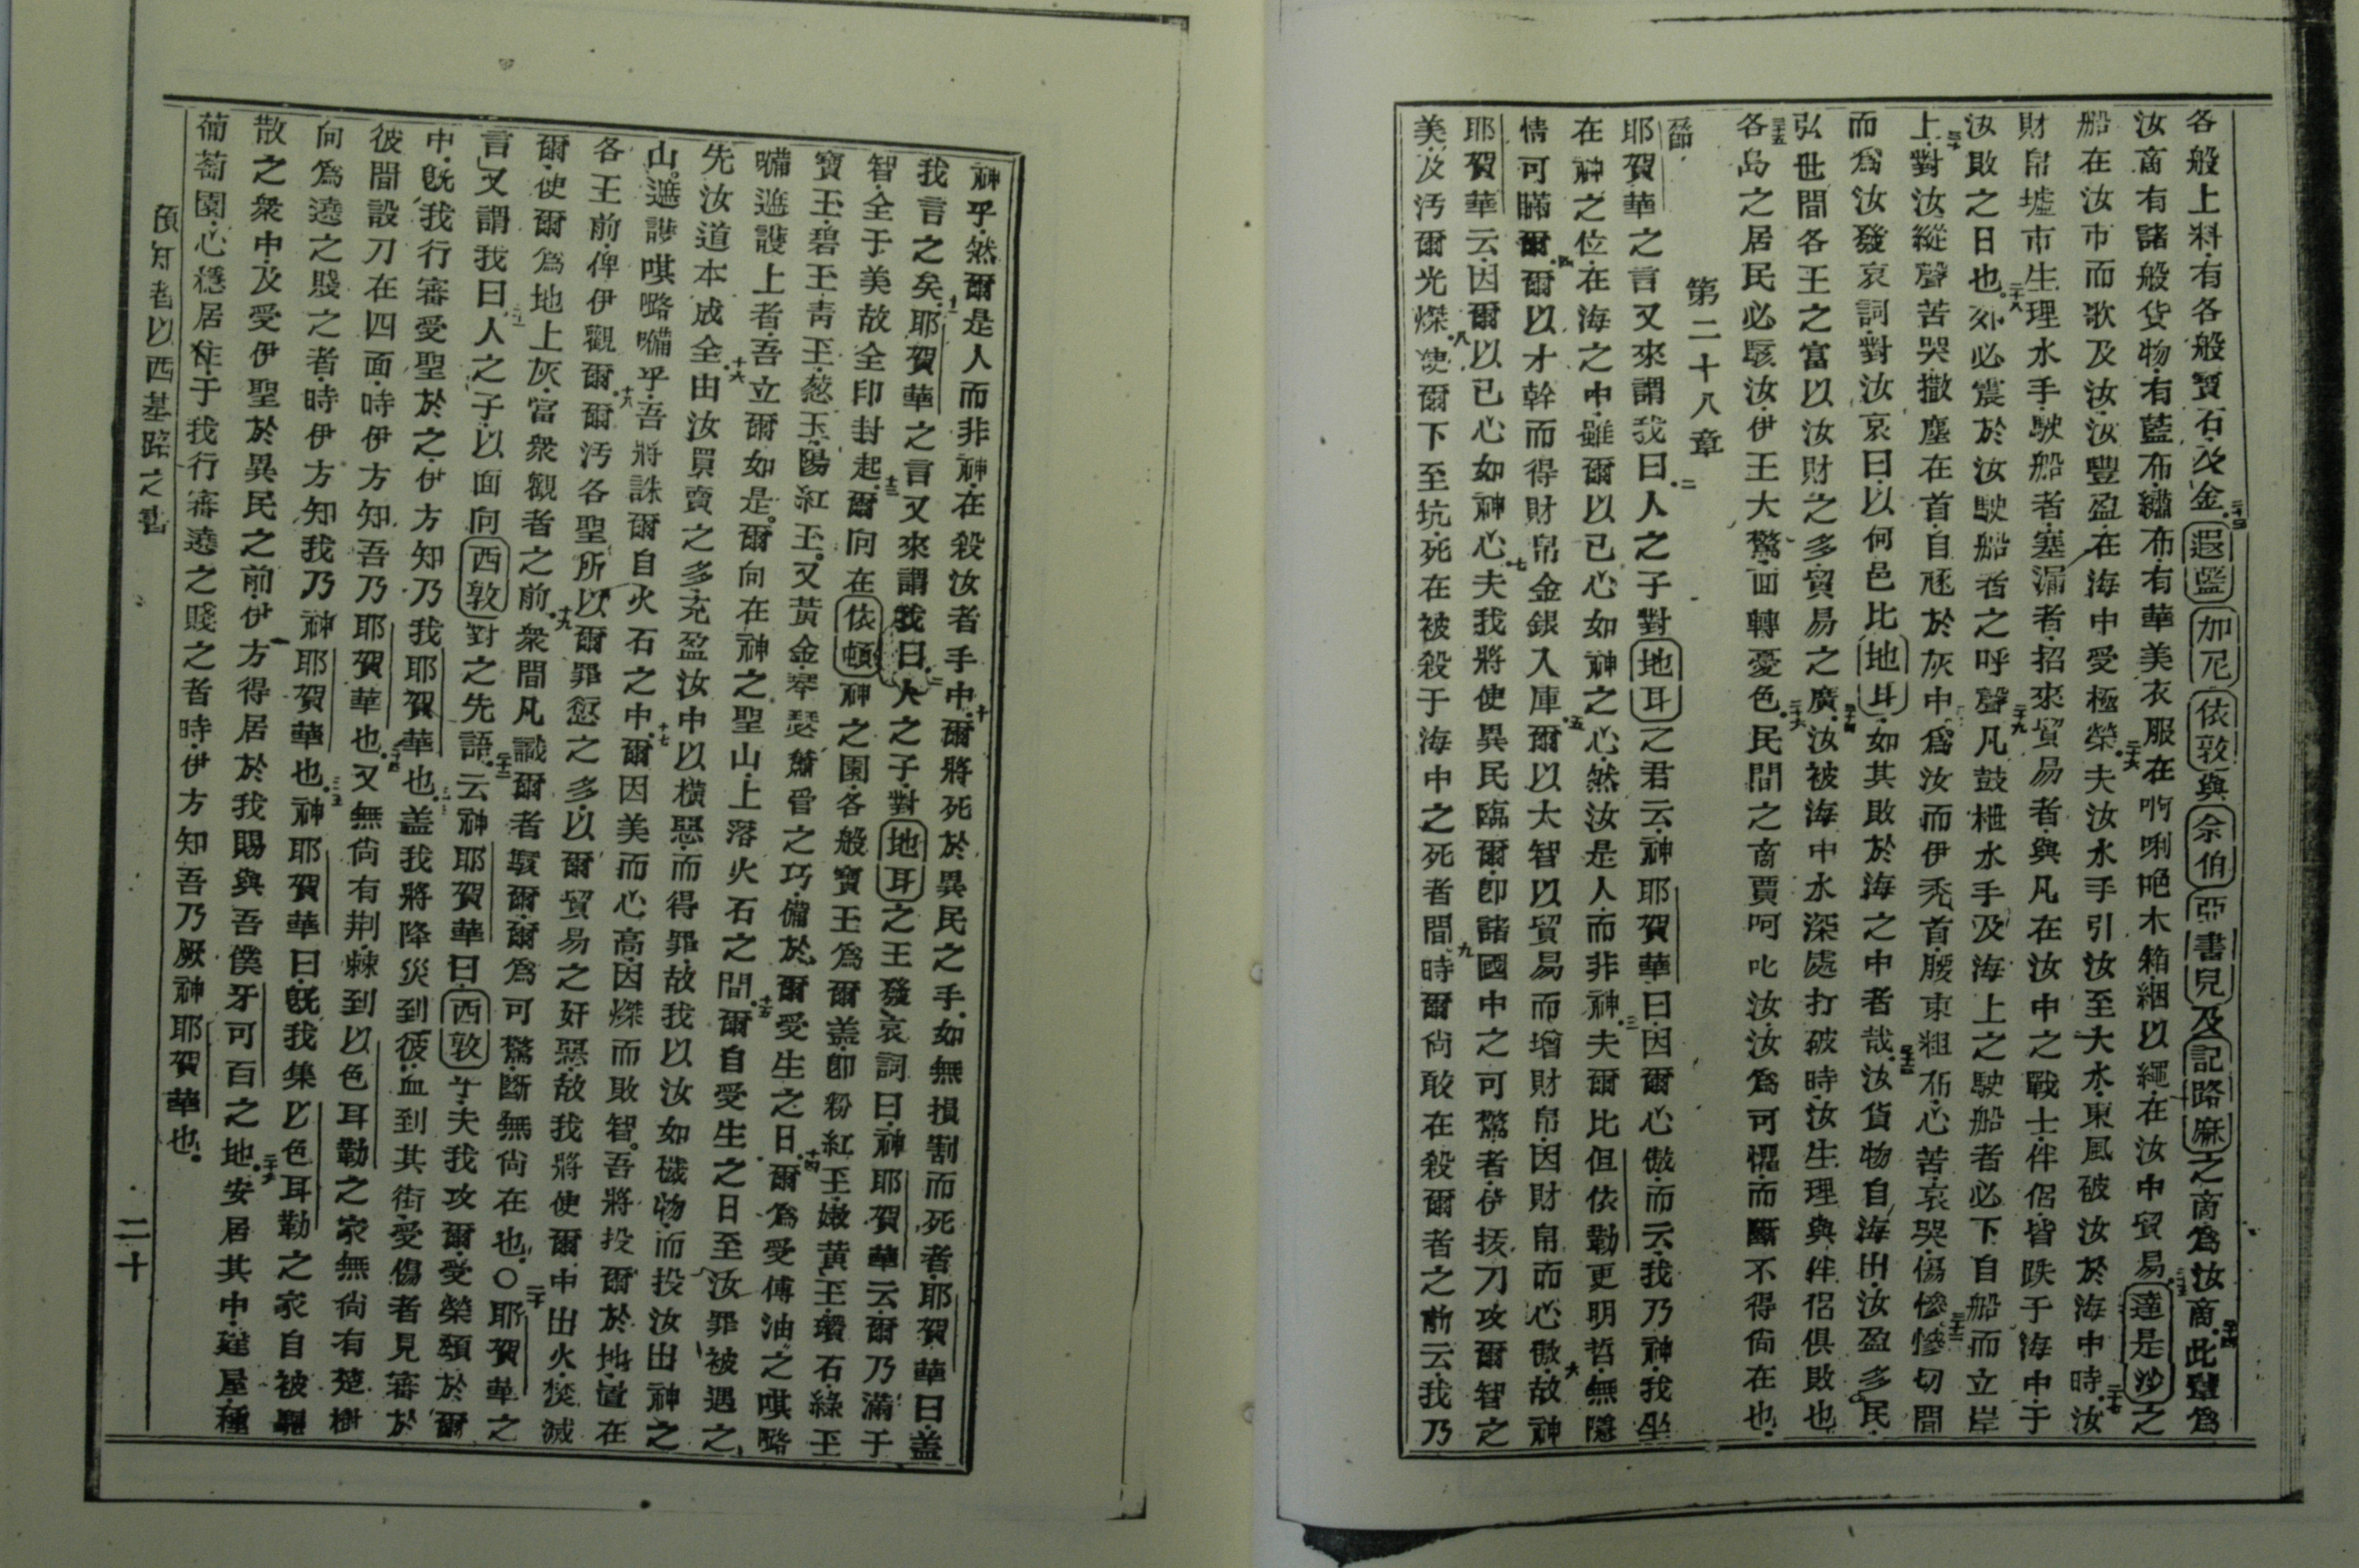 各般上料有各般寳石及金遐藍加尼依敦與佘伯亞書兒及記路麻之商爲汝商此輩爲
汝商有諸般貨物有藍布繡布有華美衣服在啊唎𠵽木箱綑以繩在汝中貿易達是沙之
船在汝市而歌及汝汝豐盈在海中受極榮夫汝水手引汝至大水東風被汝於海中時汝
財帛墟市生理水手駛船者塞漏者招來貿易者與凡在汝中之戰士伴侶皆跌于海中于
汝敗之日也郊必震於汝駛船者之呼聲凡鼓枻水手及海上之駛船者必下自船而立岸
上對汝縱聲苦哭撒塵在首自𢌞於灰中爲汝而伊禿首腰束粗布心苦哀哭傷慘慘切間
而爲汝發哀詞對汝哀曰以何邑比地耳如其敗於海之中者哉汝貨物自海出汝盈多民
弘世間各王之富以汝財之多貿易之廣汝被海中水深處打破時汝生理與伴侶俱敗也
各島之居民必駭汝伊王大驚面轉憂色民間之商賈呵叱汝汝爲可懼而斷不得尚在也
第二十八章
耶賀華之言又來謂我曰人之子對地耳之君云神耶賀華曰因爾心傲而云我乃神我坐
在神之位在海之中雖爾以已心如神之心然汝是人而非神夫爾比但依勒更明哲無隱
情可瞞爾爾以才幹而得財帛金銀入庫爾以大智以貿易而增財帛因財帛而心傲故神
耶賀華云因爾以已心如神心夫我將使異民臨爾卽諸國中之可驚者伊拔刀攻爾智之
美及汚爾光燦使爾下至坑死在被殺于海中之死者間時爾尙敢在殺爾者之前云我乃
神乎然爾是人而非神在殺汝者手中爾將死於異民之手如無損割而死者耶賀華曰盖
我言之矣耶賀華之言又來謂我曰人之子對地耳之王發哀詞曰神耶賀華云爾乃滿于
智全于美故全印封起爾向在依頓神之園各般寶玉爲爾盖卽粉紅玉嫩黃玉瓚石綠玉
寶玉碧玉靑玉葱玉陽紅玉又黃金琴瑟簫管之巧備於爾受生之日爾爲受傅油之㖵㗉
㘔遮護上者吾立爾如是爾向在神之聖山上落火石之間爾自受生之日至汝罪被遇之
先汝道本成全由汝買賣之多充盈汝中以橫惡而得罪故我以汝如穢物而投汝出神之
山遮護㖵㗉㘔乎吾將誅爾自火石之中爾因美而心高因燦而敗智吾將投爾於地置在
各王前俾伊觀爾爾汚各聖所以爾罪愆之多以爾貿易之奸惡故我將使爾中出火焚滅
爾使爾爲地上灰當衆觀者之前衆間凡識爾者駭爾爾爲可驚斷無尙在也〇耶賀華之
言又謂我曰人之子以面向西敦對之先語云神耶賀華曰西敦乎夫我攻爾受榮頌於爾
中旣我行審受聖於之伊方知乃我耶賀華也盖我將降災到彼血到其街受傷者見審於
彼間設刀在四面時伊方知吾乃耶賀華也又無尙有荆棘到以色耳勒之家無尙有楚樹
向爲遶之賤之者時伊方知我乃神耶賀華也神耶賀華曰旣我集以色耳勒之家自被
散之衆中及受伊聖於異民之前伊方得居於我賜與吾僕牙可百之地安居其中建屋種
葡萄園心穩居住于我行審遶之賤之者時伊方知吾乃厥神耶賀華也
預知者以西基路之書
二十